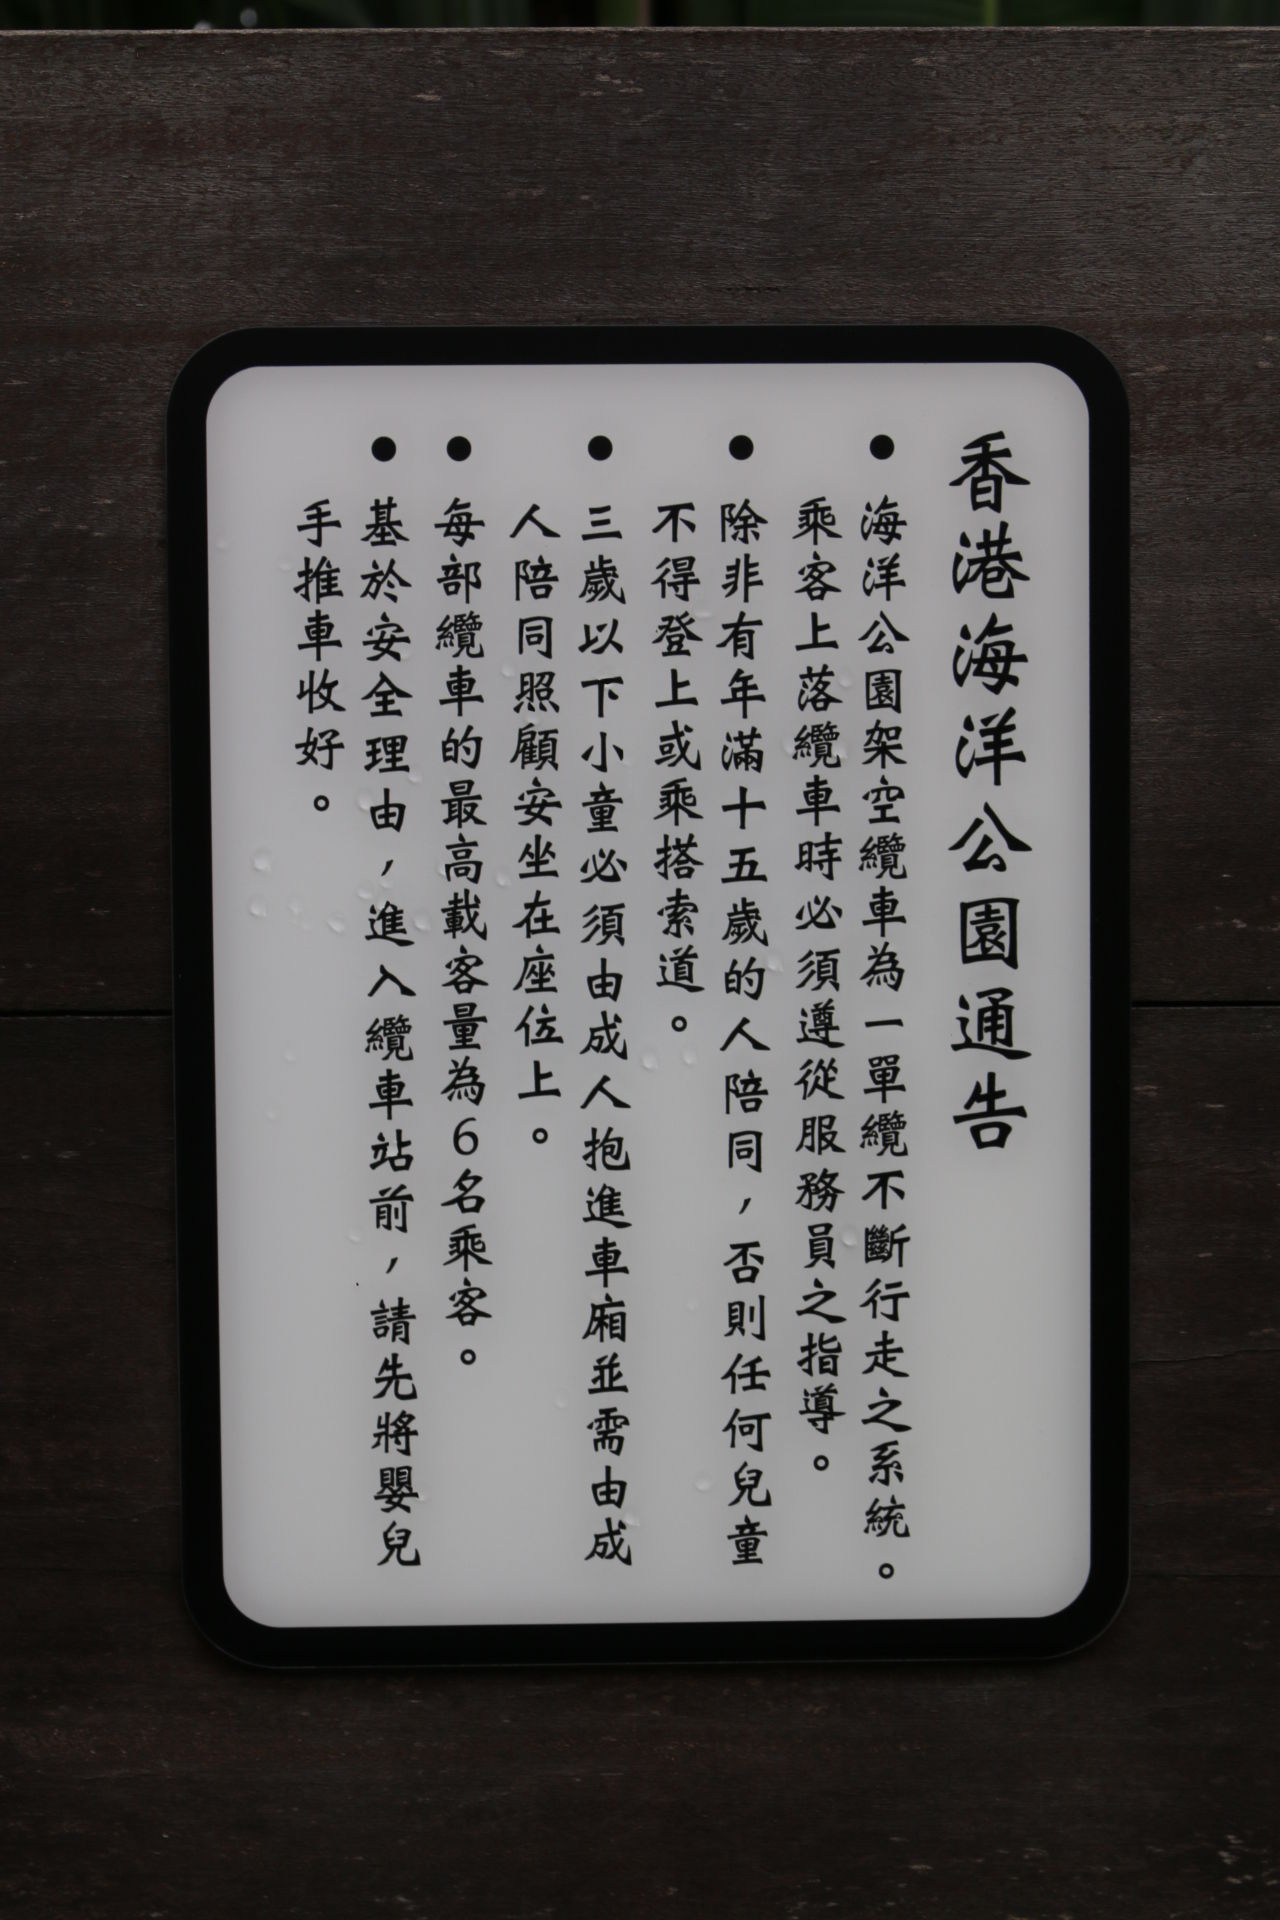 香港海洋公園通告
● 海洋公園架空纜車為一單纜不斷行走之系統。
乘客上落纜車時必須遵從服務員之指導。
● 除非有年滿十五歲的人陪同，否則任何兒童
不得登上或乘搭索道。
● 三歲以下小童必須由成人抱進車廂並需由成
人陪同照顧安坐在座位上。
● 每部纜車的最高載客量為6名乘客。
● 基於安全理由，進入纜車站前，請先將嬰兒
手推車收好。